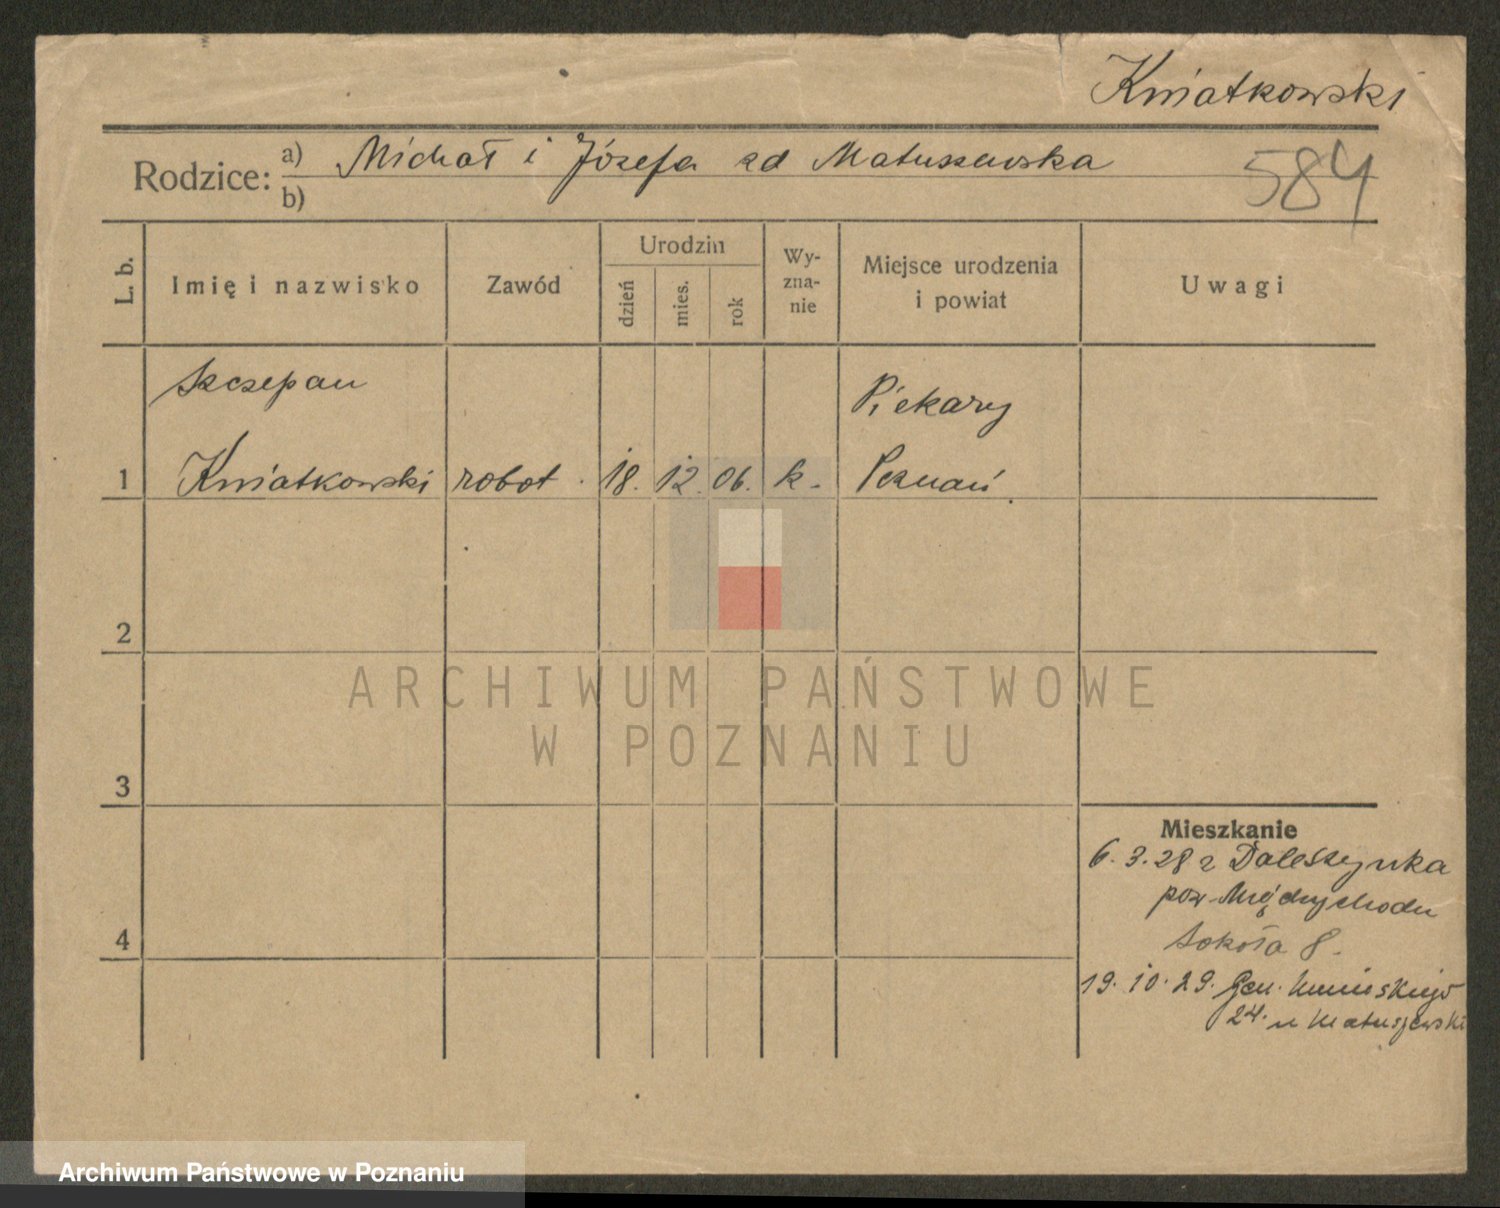 Kwiatkowski
Rodzice: a) Michał i Józefa zd Matuszewska
b)
584
L. b.
Imię i nazwisko
Zawód
Urodzin
dzień
mies.
rok
Wy-
zna-
nie
Miejsce urodzenia
i powiat
Uwagi
Szczepan
Piekary
1 Kwiatkowski robot. 18. 12. 06. k. Poznań.
2
3
4
Mieszkanie
6.3.28 z Daleszynka
pow Międzychodu
Sokoła 8.
19.10.29. Gen.
24. u Matuszewski
ARCHIWUM PAŃSTWOWE
W POZNANIU
Archiwum Państwowe w Poznaniu